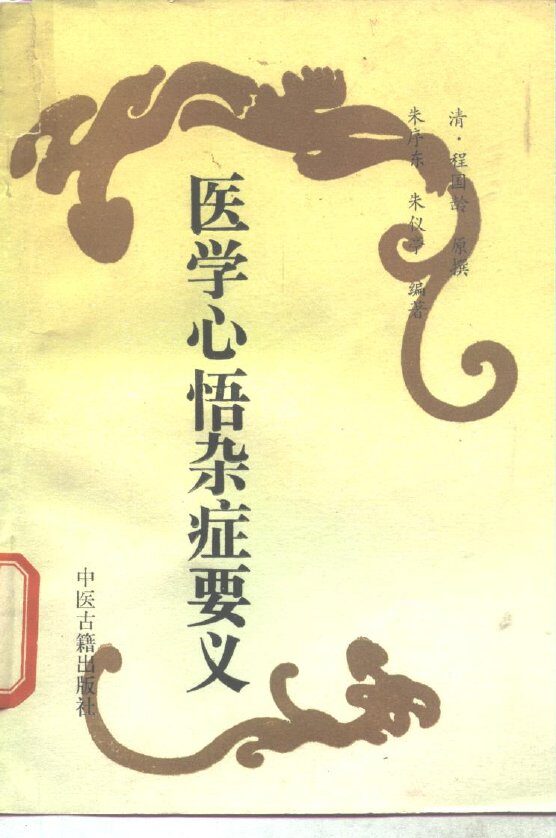 清·程国龄 原撰
朱序东 朱仪章 编著
医学心悟杂症要义
中医古籍出版社